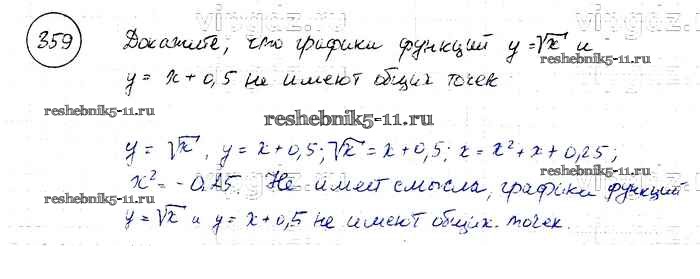 359 Докажите, что графики функций y = √x и
y = x + 0,5 не имеют общих точек
reshebnik5-11.ru reshebnik5-11.ru
reshebnik5-11.ru
y = √x, y = x + 0,5; √x = x + 0,5; x = x² + x + 0,25;
x² = - 0,25. Не имеет смысла, графики функций
reshebnik5-11.ru reshebnik5-11.ru
y = √x и y = x + 0,5 не имеют общих точек.